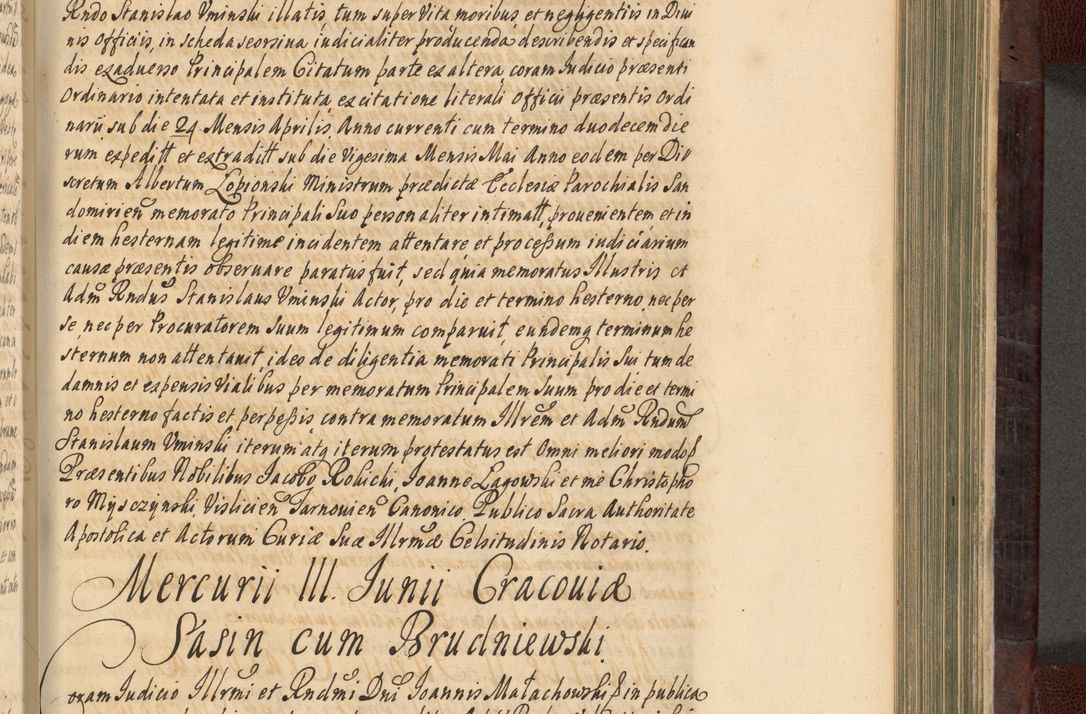 Rndo Stanislao Vminski illatis, tum super Vita moribus, et negligentiis in Diui
nis Officiis, in scheda seorsiua iudicialiter producenda describendis et specifican
dis exaduerso Principalem Citatum parte ex altera, coram Judicio præsenti
Ordinario intentata et instituta, ex citatione literali Officii præsentis Ordi
narii sub die 24 Mensis Aprilis, Anno currenti cum termino duodecem die
rum expeditt et extraditt sub die Vigesima Mensis Mai Anno eodem per Dis
cretum Albertum Lopionski Ministrum prædictæ Ecclesiæ Parochialis San
domirien memorato Principali Suo personaliter intimatt, prouenientem et in
diem hesternam legitime incidentem attentare, et processum iudiciarium
causæ præsentis obseruare paratus fuit, sed quia memoratus Illustris et
Adm Rndus Stanislaus Vminski Actor, pro die et termino hesterno, nec per
se, nec per Procuratorem suum legitimum comparuit, eundemq terminum he
sternum non attentauit, ideo de diligentia memorati Principalis Sui tum de
damnis et expensis Vialibus per memoratum Principalem Suum pro die et termi
no hesterno factis et perpessis contra memoratum Illrem et Adm Rndum
Stanislaum Vminski iterum atq iterum protestatus est Omni meliori modo
Præsentibus Nobilibus Jacobo Rokicki, Joanne Lagowski et me Christopho
ro Mysczynski, Vislicien Tarnouien Canonico Publico Sacra Authoritate
Apostolica et Actorum Curiæ Suæ Illrmæ Celsitudinis Notario.
Mercurii III. Junii Cracouiæ
Sasin cum Brudniewski
oram Judicio Illrmi et Rndmi Dni Joannis Małachowski in publica